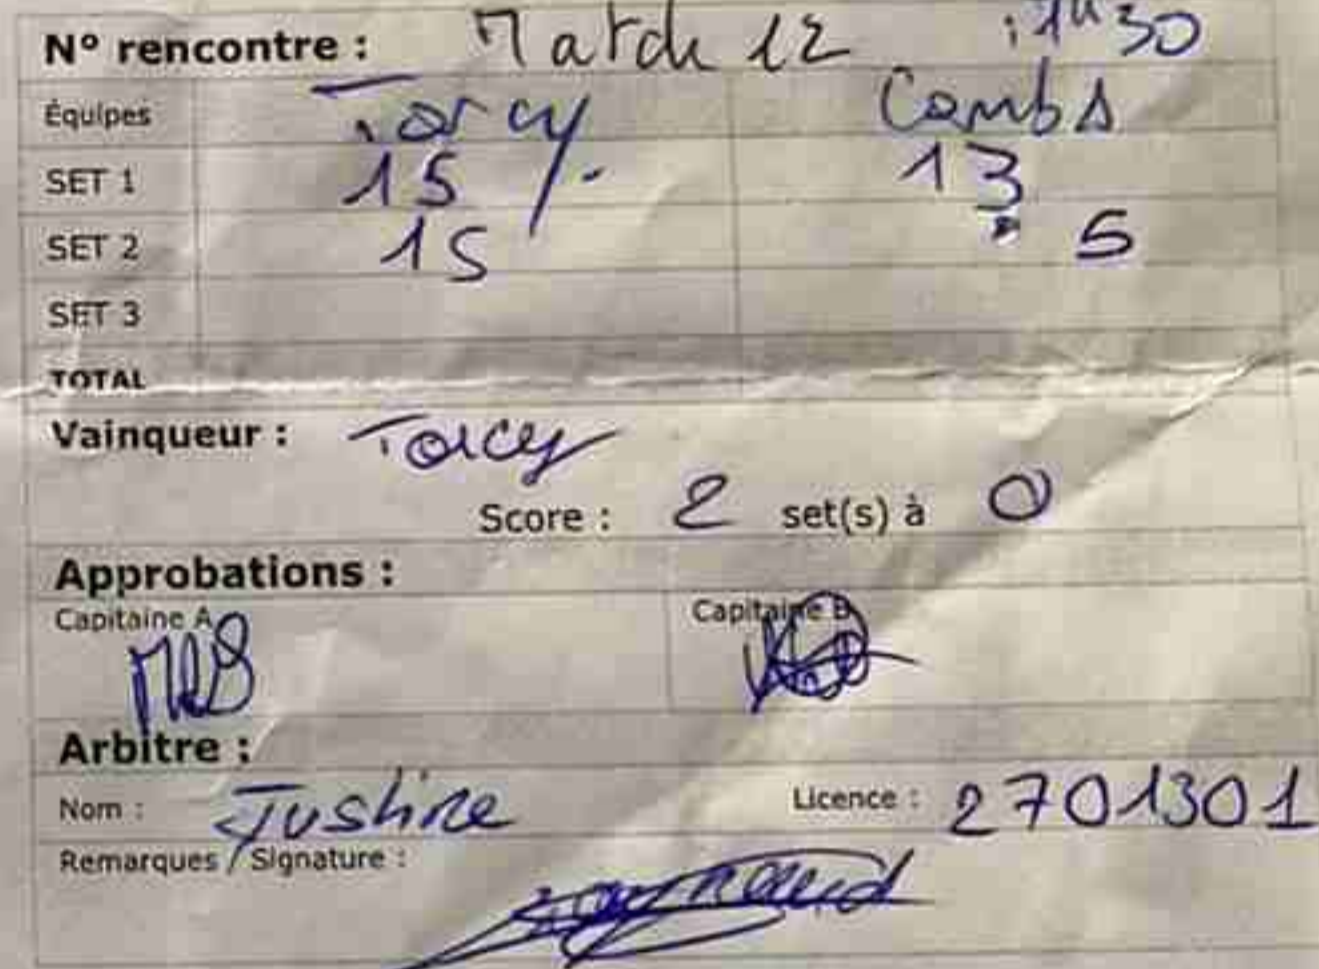 N° rencontre : Match 12 : 1h30
Équipes Torcy Combs
SET 1 15 13
SET 2 15 5
SET 3
TOTAL
Vainqueur : Torcy
Score : 2 set(s) à 0
Approbations :
Capitaine A Capitaine B
Arbitre :
Nom : Justine Licence : 2701301
Remarques / Signature :